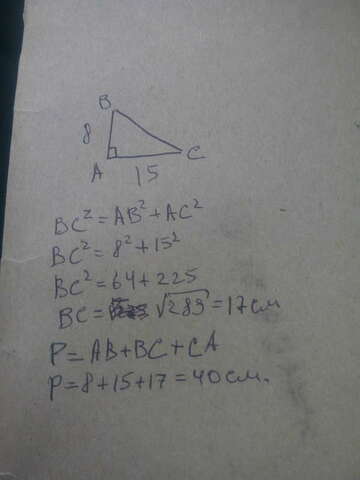 B
8
A
C
15
BC² = AB² + AC²
BC² = 8² + 15²
BC² = 64 + 225
BC = √289 = 17 см
P = AB + BC + CA
P = 8 + 15 + 17 = 40 см.